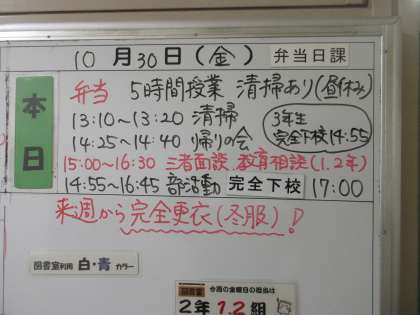 10月30日(金) 弁当日課
本日
弁当 5時間授業 清掃あり(昼休み)
13:10〜13:20 清掃
14:25〜14:40 帰りの会
3年生
完全下校14:55
15:00〜16:30 三者面談、教育相談(1.2年)
14:55〜16:45 部活動 完全下校 17:00
来週から完全更衣(冬服)!
図書室利用 白・青 カラー
図書室 今週の金曜日の担当は
2年1.2組